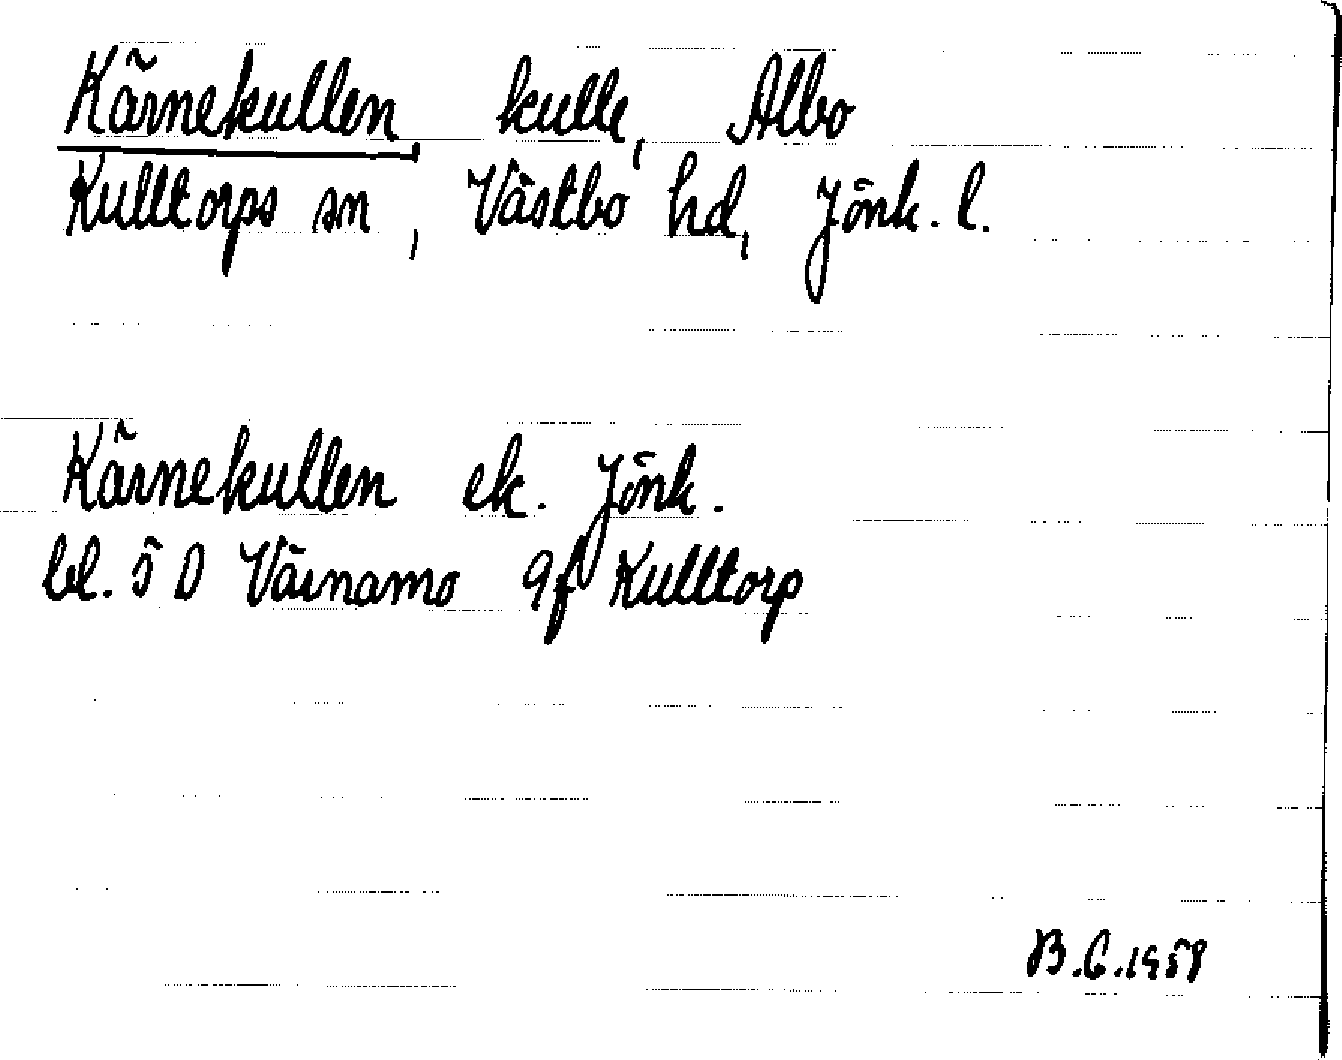 Kärnekullen, kulle, Albo
Kulltorps sn, Västbo hd, Jönk. l.
Kärnekullen ek. Jönk.
bl. 5 D Värnamo 9f Kulltorp
B.G.1958